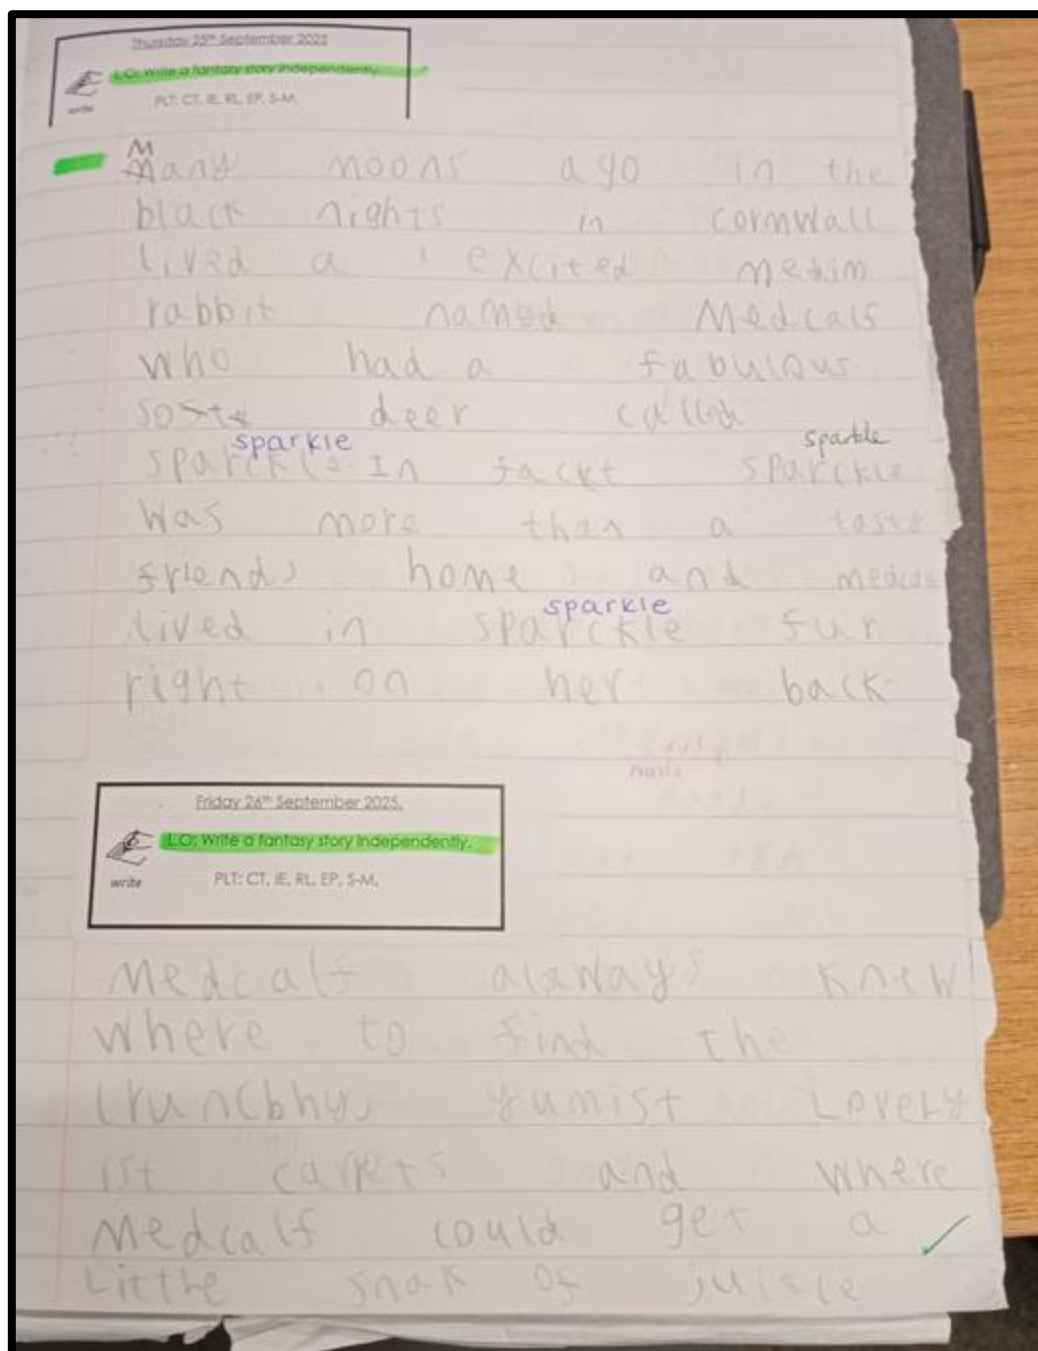 Thursday 25th September 2025
L.O: Write a fantasy story independently.
write
PLT: CT, IE, RL, EP, S-M.
M
many noons ago in the
black nights in cornwall
lived a excited medim
rabbit named Medcalf
who had a fabulous
deer called
sparkle sparkle
sparckle In fackt sparckle
was more than a
friend, home and
sparkle
lived in sparckle fur
right on her back
Friday 26th September 2025.
L.O: Write a fantasy story independently.
write
PLT: CT, IE, RL, EP, S-M.
Medcalf knew
where to find the
yumist Lovely
ist and where
Medcalf could get a
Little snak of